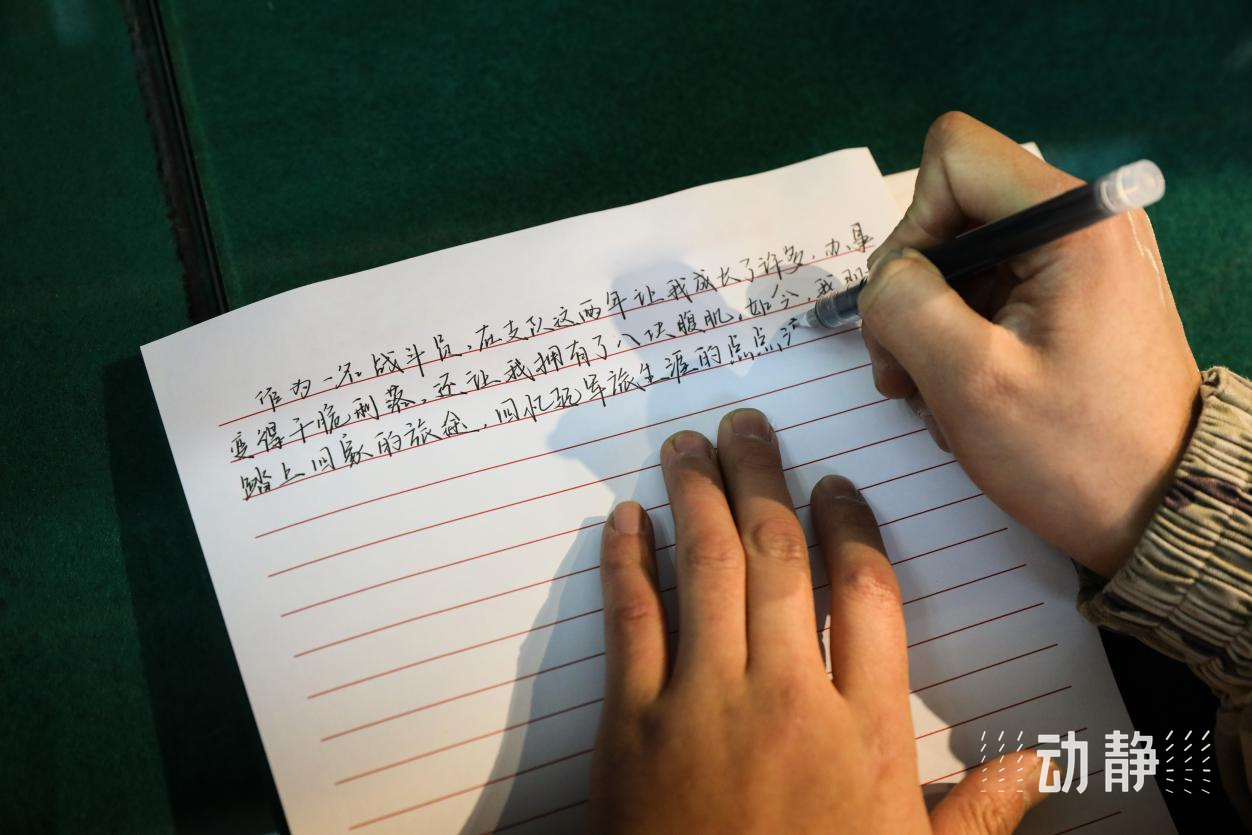 作为一名战斗员,在支队这两年让我成长了许多,办事
变得干脆利落,还让我拥有了八块腹肌,如今,我
踏上回家的旅途,回忆起军旅生涯的点点
动静